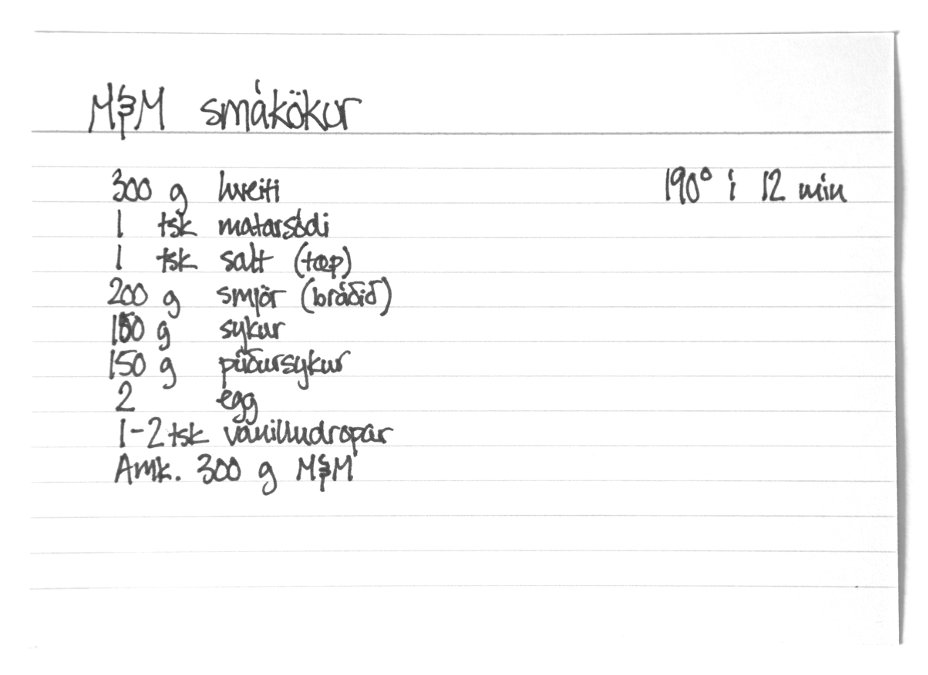 M&M smákökur
300 g hveiti 190° í 12 mín
1 tsk matarsódi
1 tsk salt (tæp)
200 g smjör (bráðið)
g sykur
150 g púðursykur
2 egg
1-2 tsk vanilludropar
Amk. 300 g M&M